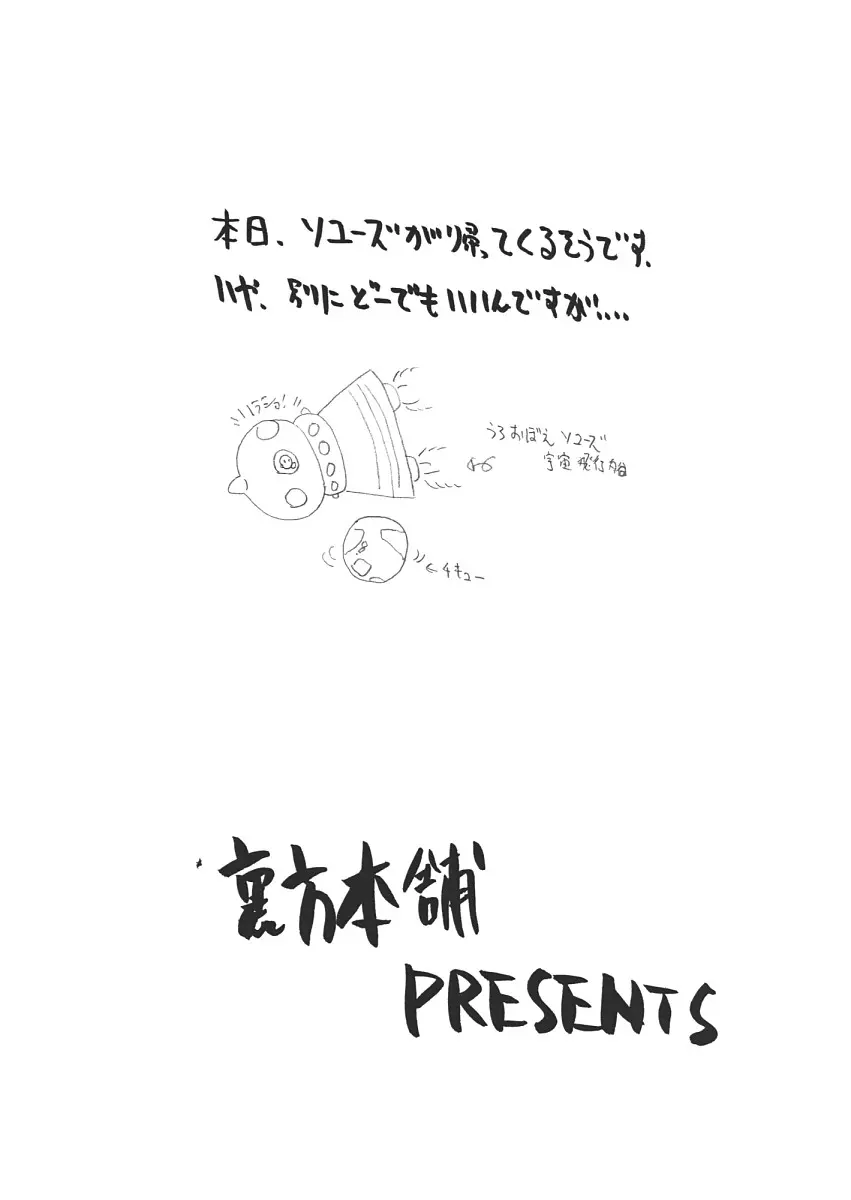 本日、ソユーズが帰ってくるそうです、
いや、別にどーでもいいんですが....
ハラショー!
うろおぼえソユーズ
宇宙飛行船
←チキュー
裏方本舗
PRESENTS